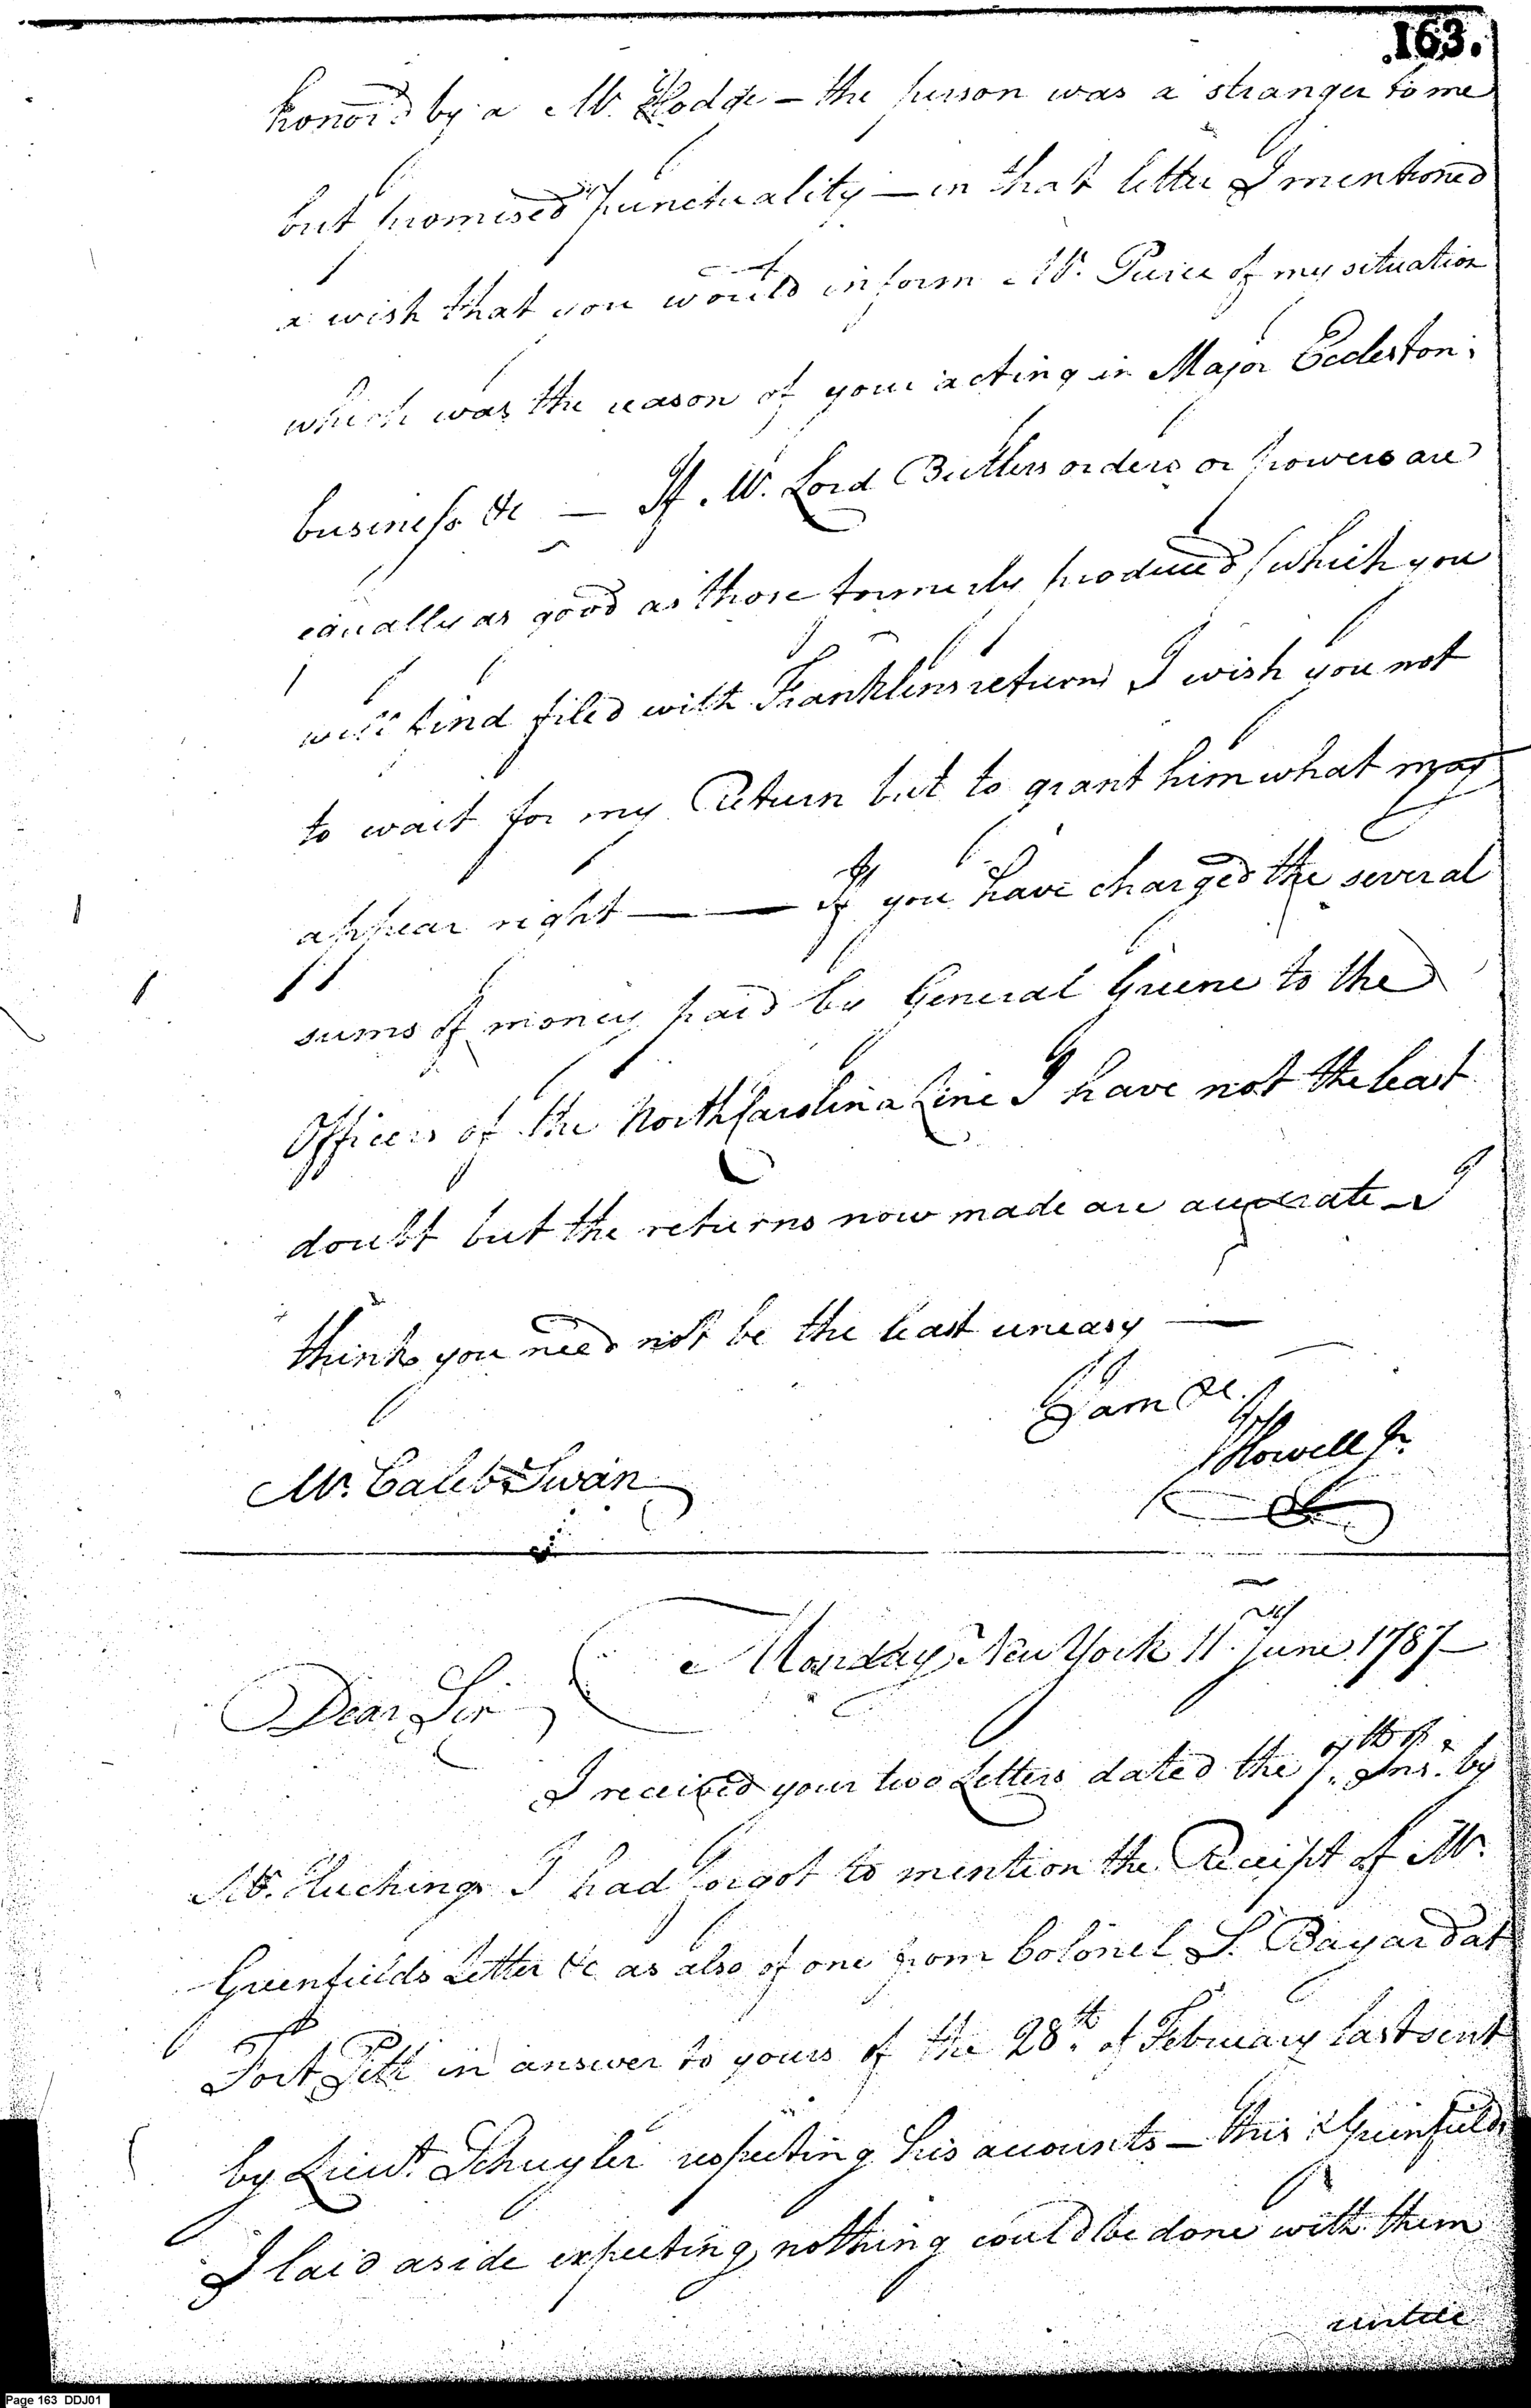 163.
honor'd by a Mr. Hodge — the person was a stranger to me
but promised punctuality — in that letter I mentioned
a wish that you would inform Mr. Pierce of my situation
which was the reason of your acting in Major Eccleston's
business &c — If Mr. Lord Butlers orders or powers are
equally as good as those formerly produced (which you
will find filed with Franklins return) I wish you not
to wait for my Return but to grant him what may
appear right —— If you have charged the several
sums of money paid by General Greene to the
Officers of the North Carolina Line I have not the least
doubt but the returns now made are accurate — I
think you need not be the least uneasy —
I am &c.
J Howell Jr.
Mr. Caleb Swan
Monday New York 11th June 1787
Dear Sir
I received your two Letters dated the 7th Inst. by
Mr. Huchings I had forgot to mention the Receipt of Mr.
Greenfields Letter &c as also of one from Colonel S. Bayard at
Fort Pitt in answer to yours of the 28th of February last sent
by Lieut. Schuyler respecting his accounts — this & Greenfields
I laid aside expecting nothing could be done with them
untill
Page 163 DDJ01